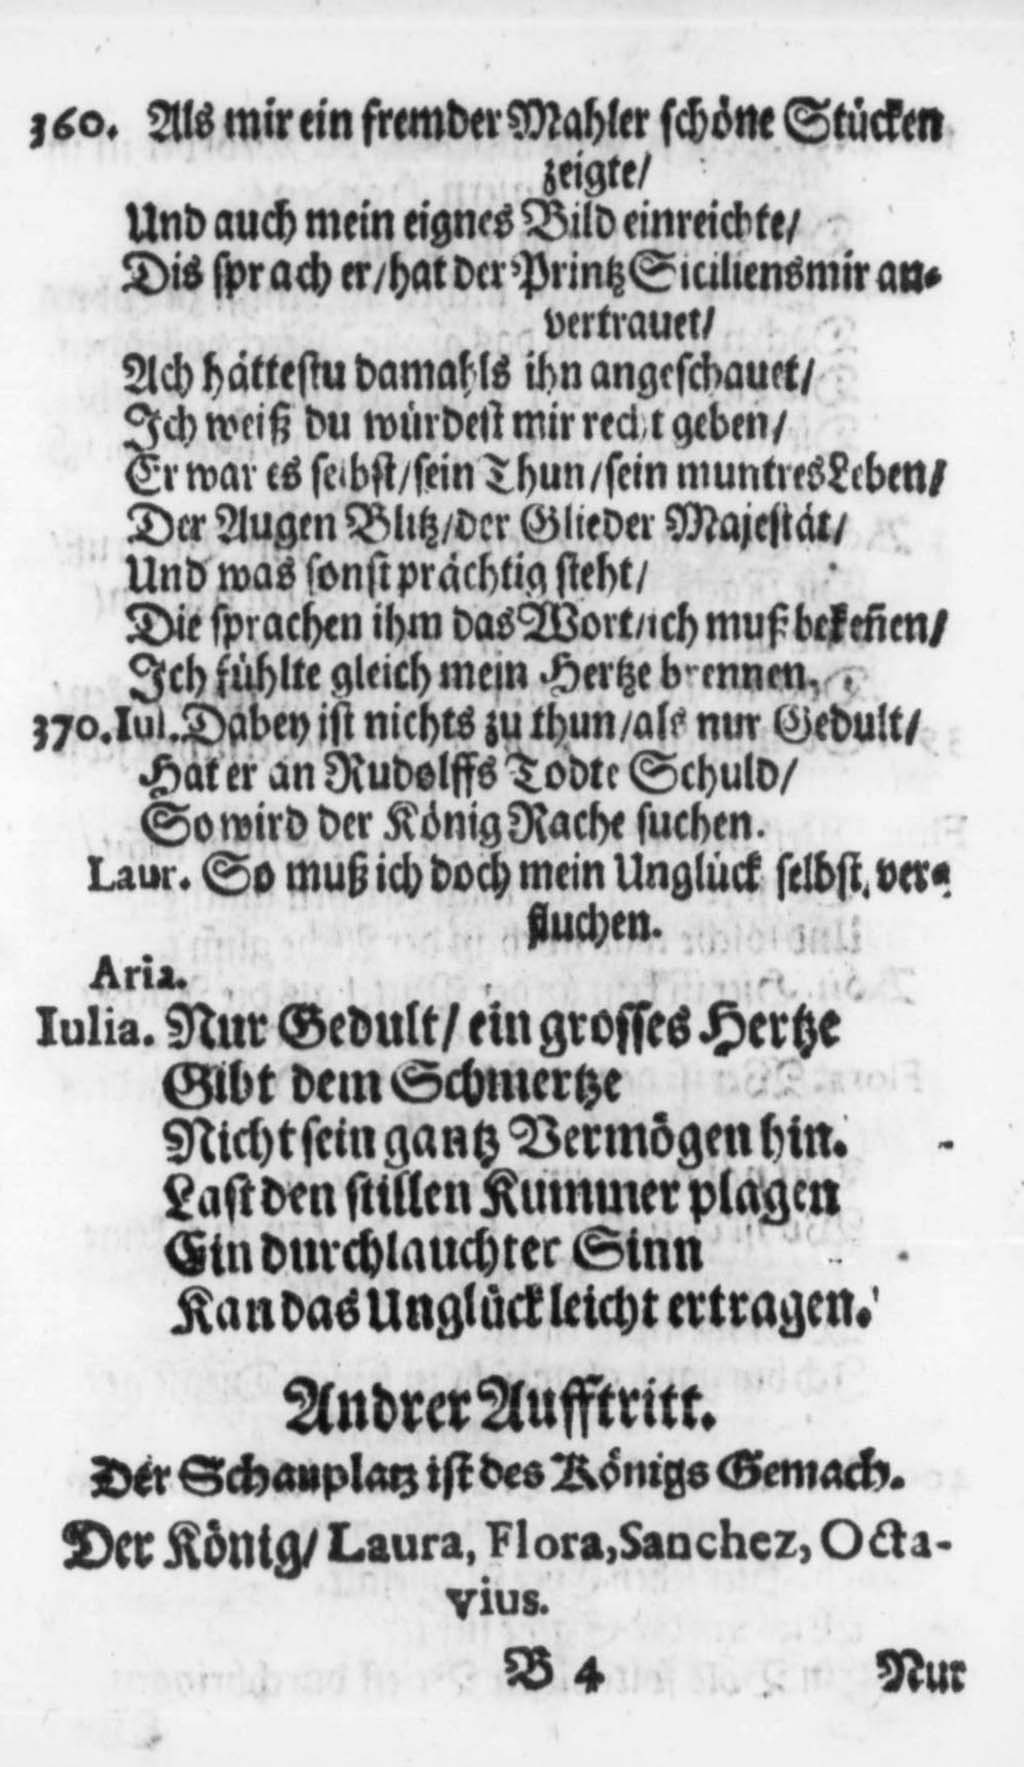 360. Als mir ein fremder Mahler schöne Stücken
zeigte/
Und auch mein eignes Bild einreichte/
Dis sprach er/hat der Printz Siciliens mir an-
vertrauet/
Ach hättestu damahls ihn angeschauet/
Ich weiß du würdest mir recht geben/
Er war es selbst/sein Thun/sein muntres Leben/
Der Augen Blitz/der Glieder Majestät/
Und was sonst prächtig steht/
Die sprachen ihm das Wort/ich muß bekeñen/
Ich fühlte gleich mein Hertze brennen.
370. Iul. Dabey ist nichts zu thun/als nur Gedult/
Hat er an Rudolffs Todte Schuld/
So wird der König Rache suchen.
Laur. So muß ich doch mein Unglück selbst ver-
fluchen.
Aria.
Iulia. Nur Gedult/ ein grosses Hertze
Gibt dem Schmertze
Nicht sein gantz Vermögen hin.
Last den stillen Kummer plagen
Ein durchlauchter Sinn
Kan das Unglück leicht ertragen.
Andrer Aufftritt.
Der Schauplatz ist des Königs Gemach.
Der König/ Laura, Flora, Sanchez, Octa-
vius.
B 4 Nur